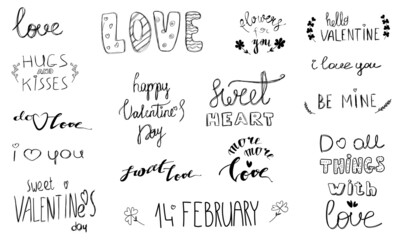 love
HUGS
AND
KISSES
do love
i you
sweet
VALENTINE'S
day
LOVE
happy
Valentine's
Day
sweet love
14 FEBRUARY
flowers
for
you
Sweet
HEART
more
more
love
hello
VALENTINE
i love you
BE MINE
Do all
THINGS
with
love